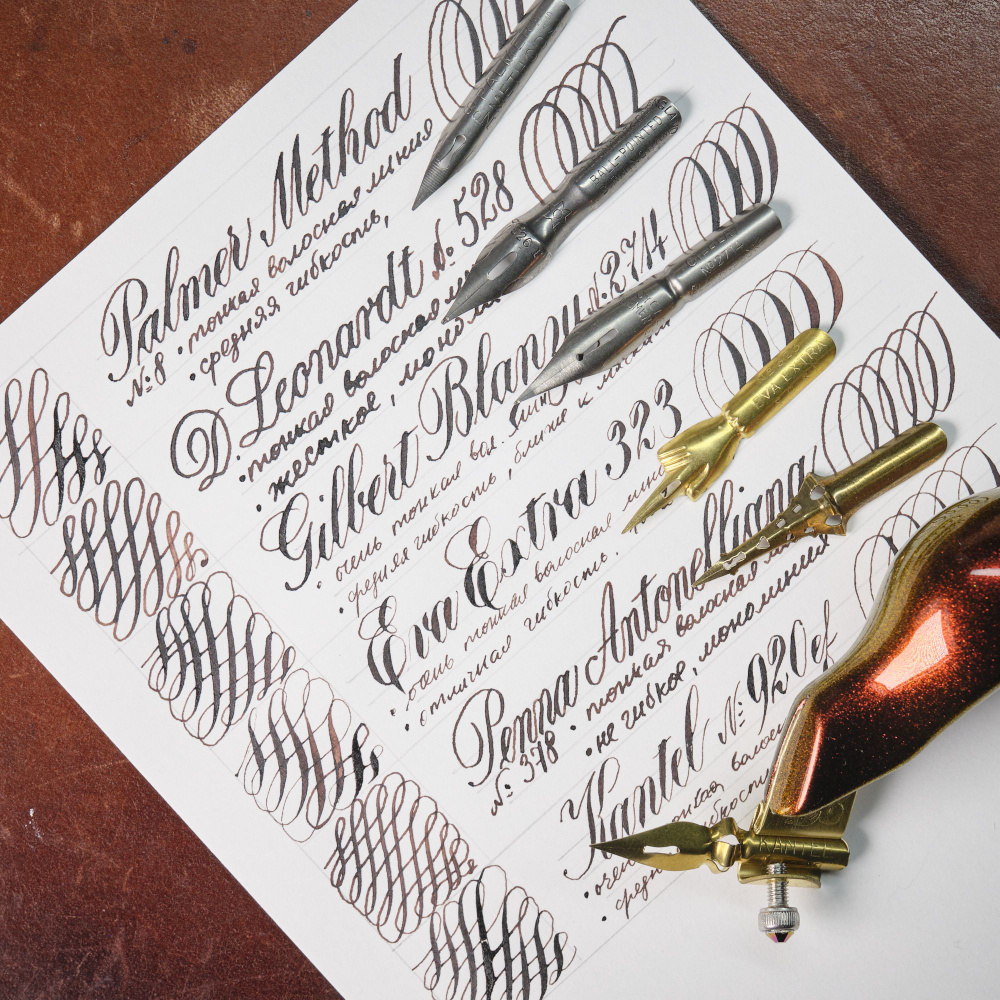 Palmer Method
№8 • тонкая волосная линия
• средняя гибкость,
D. Leonardt № 528
• тонкая волосная
жесткое,
Gilbert Blanzy N. 2774
• очень тонкая вол.
• средняя гибкость, ближе к мягким
Eva Extra 323
• очень тонкая волосная
• отличная гибкость.
Penna Antonelliana
№ 378 • тонкая волосная
• не гибкое, монолиния
Kantel № 920 ef
BALL-POINTED
EVA EXTRA
KANTEL